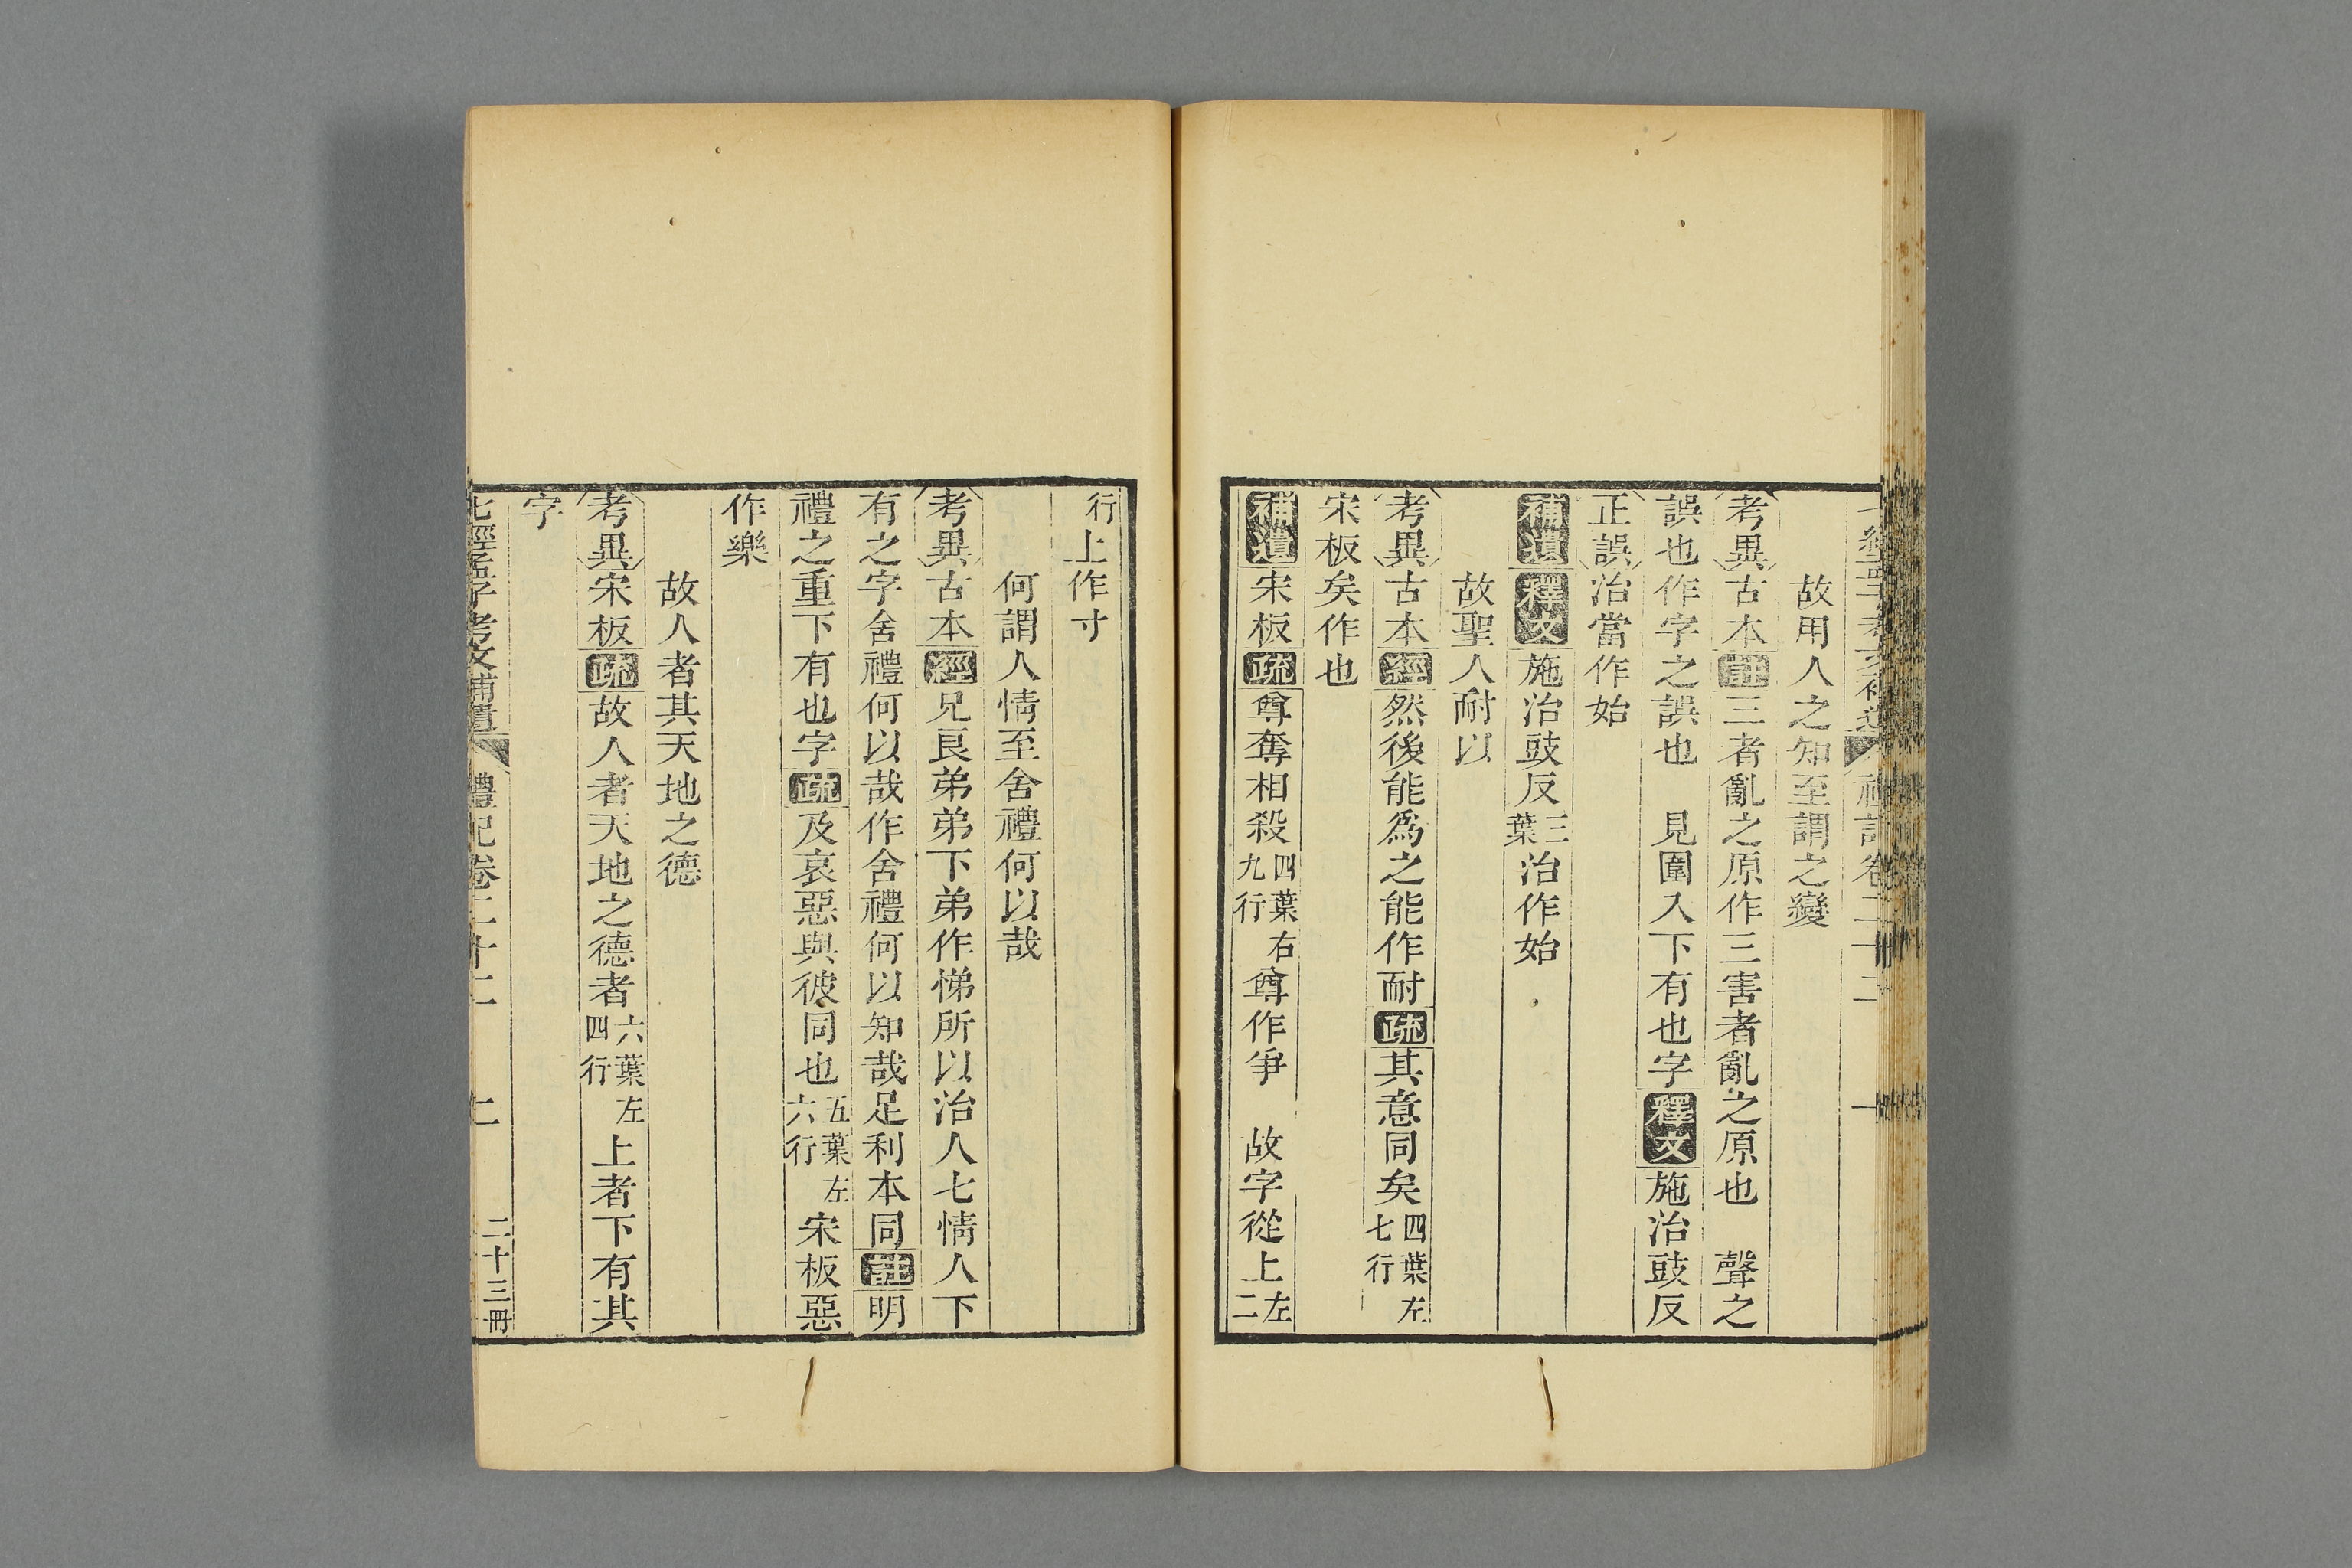 故用人之知至謂之變
考異古本註三者亂之原作三害者亂之原也　聲之
誤也作字之誤也　見圍入下有也字釋文施治豉反
正誤治當作始
補遺釋文施治豉反三葉治作始
故聖人耐以
考異古本經然後能爲之能作耐疏其意同矣四葉左七行
宋板矣作也
補遺宋板疏尊奪相殺四葉右九行尊作爭　故字從上左二
行上作寸
何謂人情至舍禮何以哉
考異古本經兄良弟弟下弟作悌所以治人七情人下
有之字舍禮何以哉作舍禮何以知哉足利本同註明
禮之重下有也字疏及哀惡與彼同也五葉左六行宋板惡
作樂
故人者其天地之德
考異宋板疏故人者天地之德者六葉左四行上者下有其
字
七經孟子考文補遺　禮記卷二十二　二十三冊